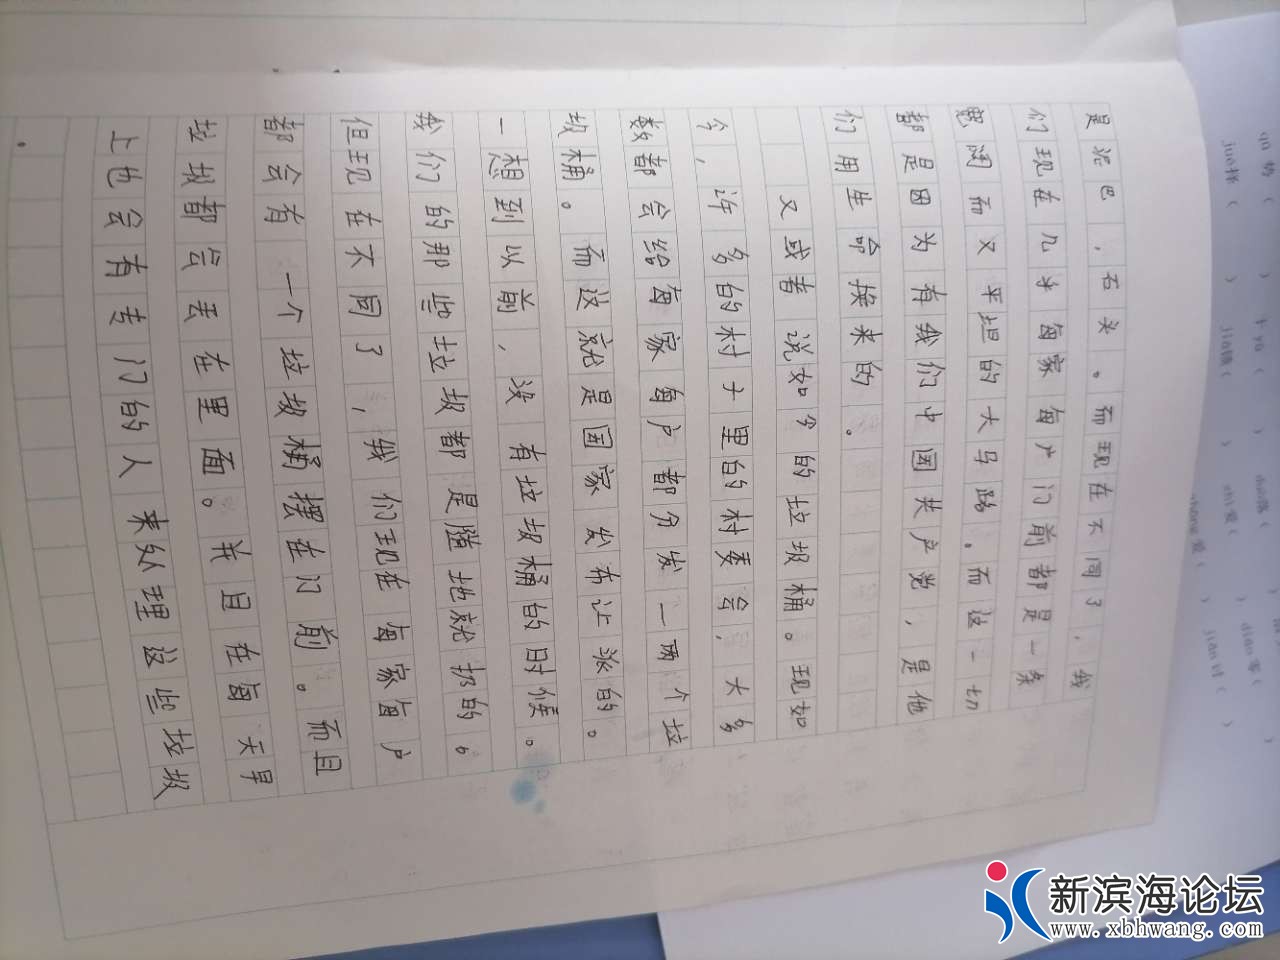 是泥巴，石头。而现在不同了，我
们现在几乎每家每户门前都是一条
宽阔而又平坦的大马路。而这一切
都是因为有我们中国共产党，是他
们用生命换来的。
又或者说如今的垃圾桶。现如
今，许多的村子里的村委会，大多
数都会给每家每户都分发一两个垃
圾桶。而这就是国家发布让派的。
一想到以前，没有垃圾桶的时候。
我们的那些垃圾都是随地就扔的。
但现在不同了，我们现在每家每户
都会有一个垃圾桶摆在门前。而且
垃圾都会丢在里面。并且在每天早
上也会有专门的人来处理这些垃圾
。
新滨海论坛
www.xbhwang.com